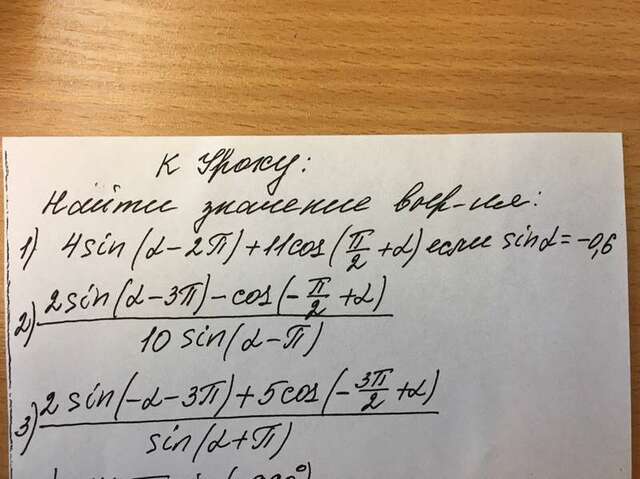 К Уроку:
Найти значение выр-ия:
1) 4sin(α-2π)+11cos(π/2+α) если sinα=-0,6
2) (2sin(α-3π)-cos(-π/2+α))/(10sin(α-π))
3) (2sin(-α-3π)+5cos(-3π/2+α))/(sin(α+π))